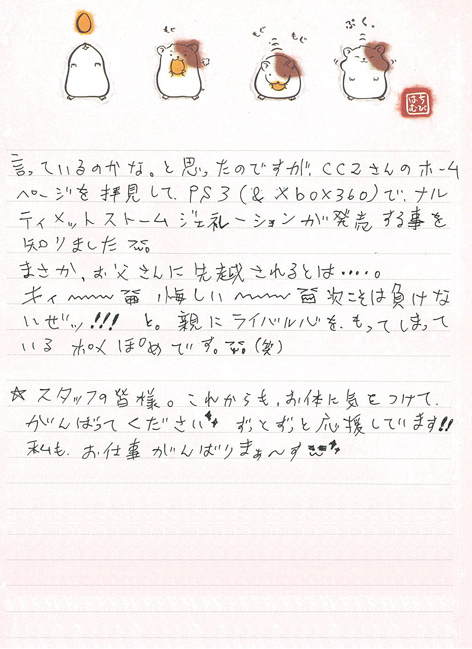 もぐ
もぐ もぐ
ぷく。
はち
むび
言っているのかな。と思ったのですが、CC2さんのホーム
ページを拝見して、PS3(&Xbox360)で、ナル
ティメットストームジェネレーションが発売する事を
知りました
まさか、お父さんに先越されるとは‥‥。
キィ〜〜 悔しい〜〜 次こそは負けな
いぜッ!!! と。親にライバル心を、もってしまって
いる ポメぽめです。(笑)
☆スタッフの皆様。これからも、お体に気をつけて、
がんばってください ずっとずっと応援しています!!
私も、お仕事がんばりまぁ〜す